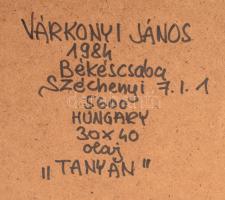 VÁRKONYI JÁNOS
1984
Békéscsaba
Széchenyi 7. I. 1
5600
HUNGARY
30x40
olaj
"TANYÁN"